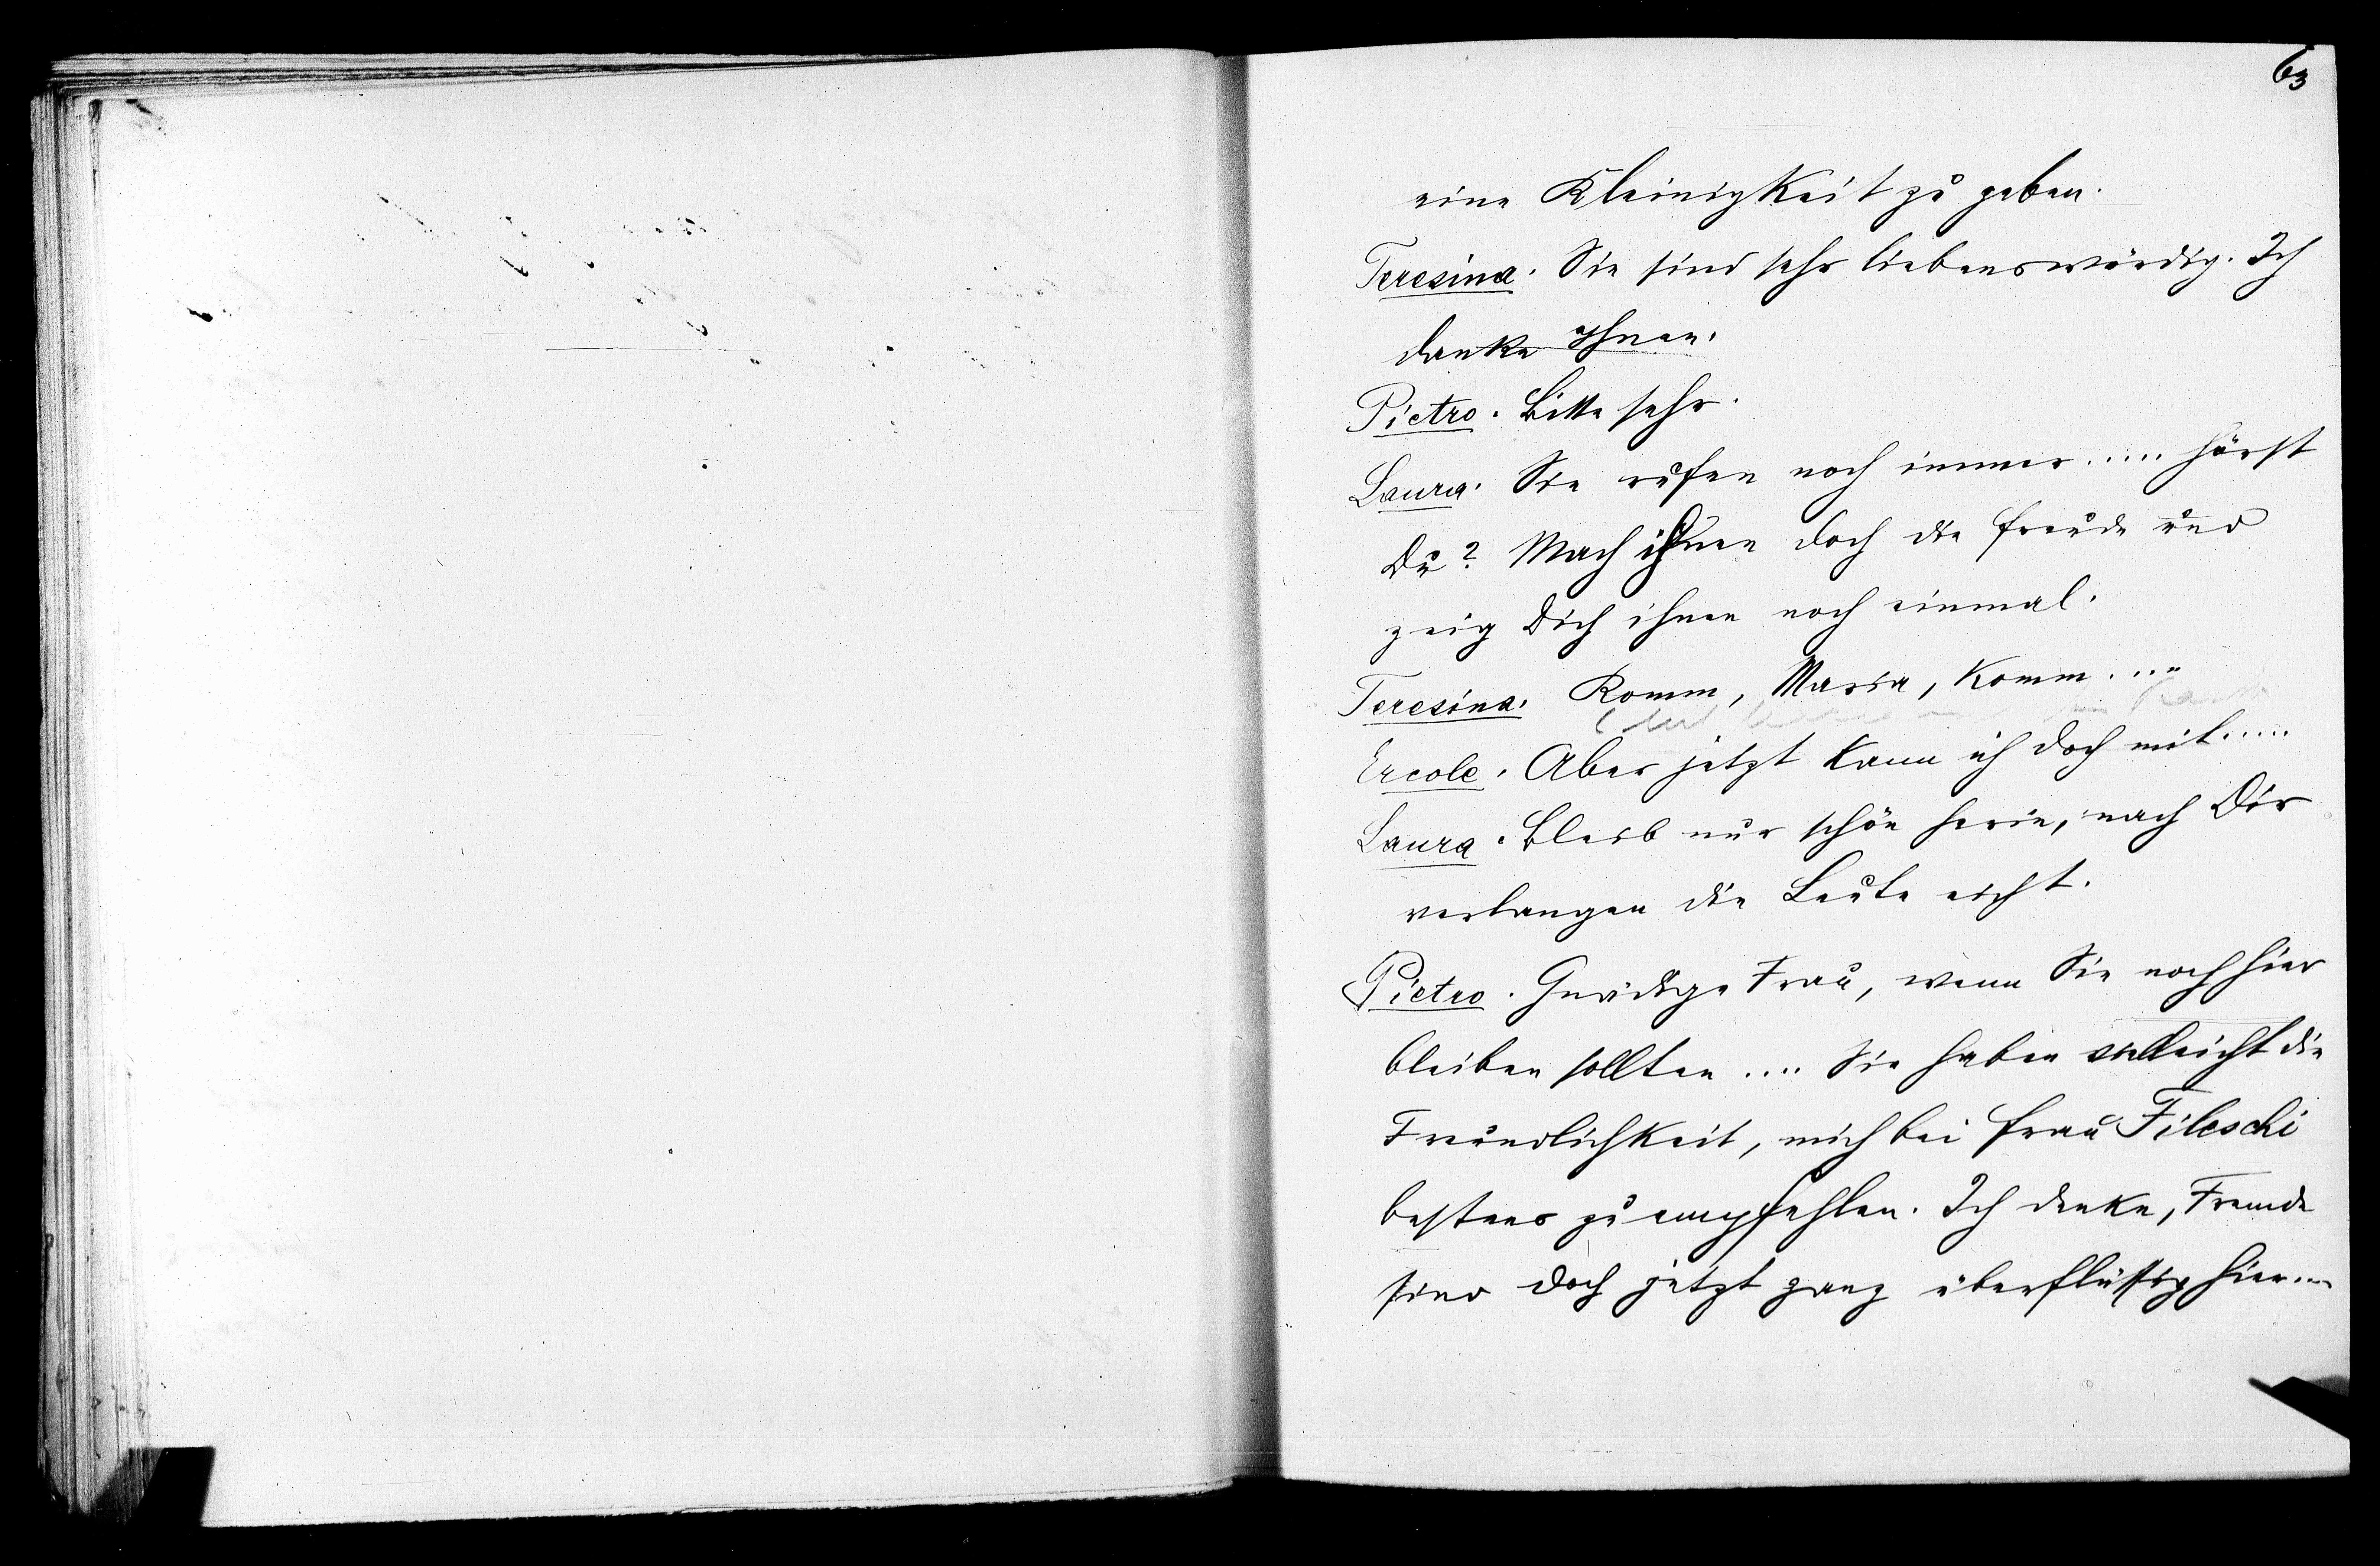 63
eine Kleinigkeit zu geben.
Teresina. Sie sind sehr liebenswürdig. Ich
danke Ihnen.
Pietro. Bitte sehr.
Laura. Sie rufen noch immer..... hörst
Du? Mach ihnen doch die Freude und
zeig Dich ihnen noch einmal.
Teresina. Komm, Maria, komm....
Ercole. Aber jetzt kann ich doch mit.....
Laura. Bleib nur schön herin, nach Dir
verlangen die Leute nicht.
Pietro. Gnädige Frau, wenn Sie noch hier
bleiben sollten.... Sie haben vielleicht die
Freundlichkeit, mich bei Frau Fileschi
bestens zu empfehlen. Ich denke, Fremde
sind doch jetzt ganz überflüssig hier....